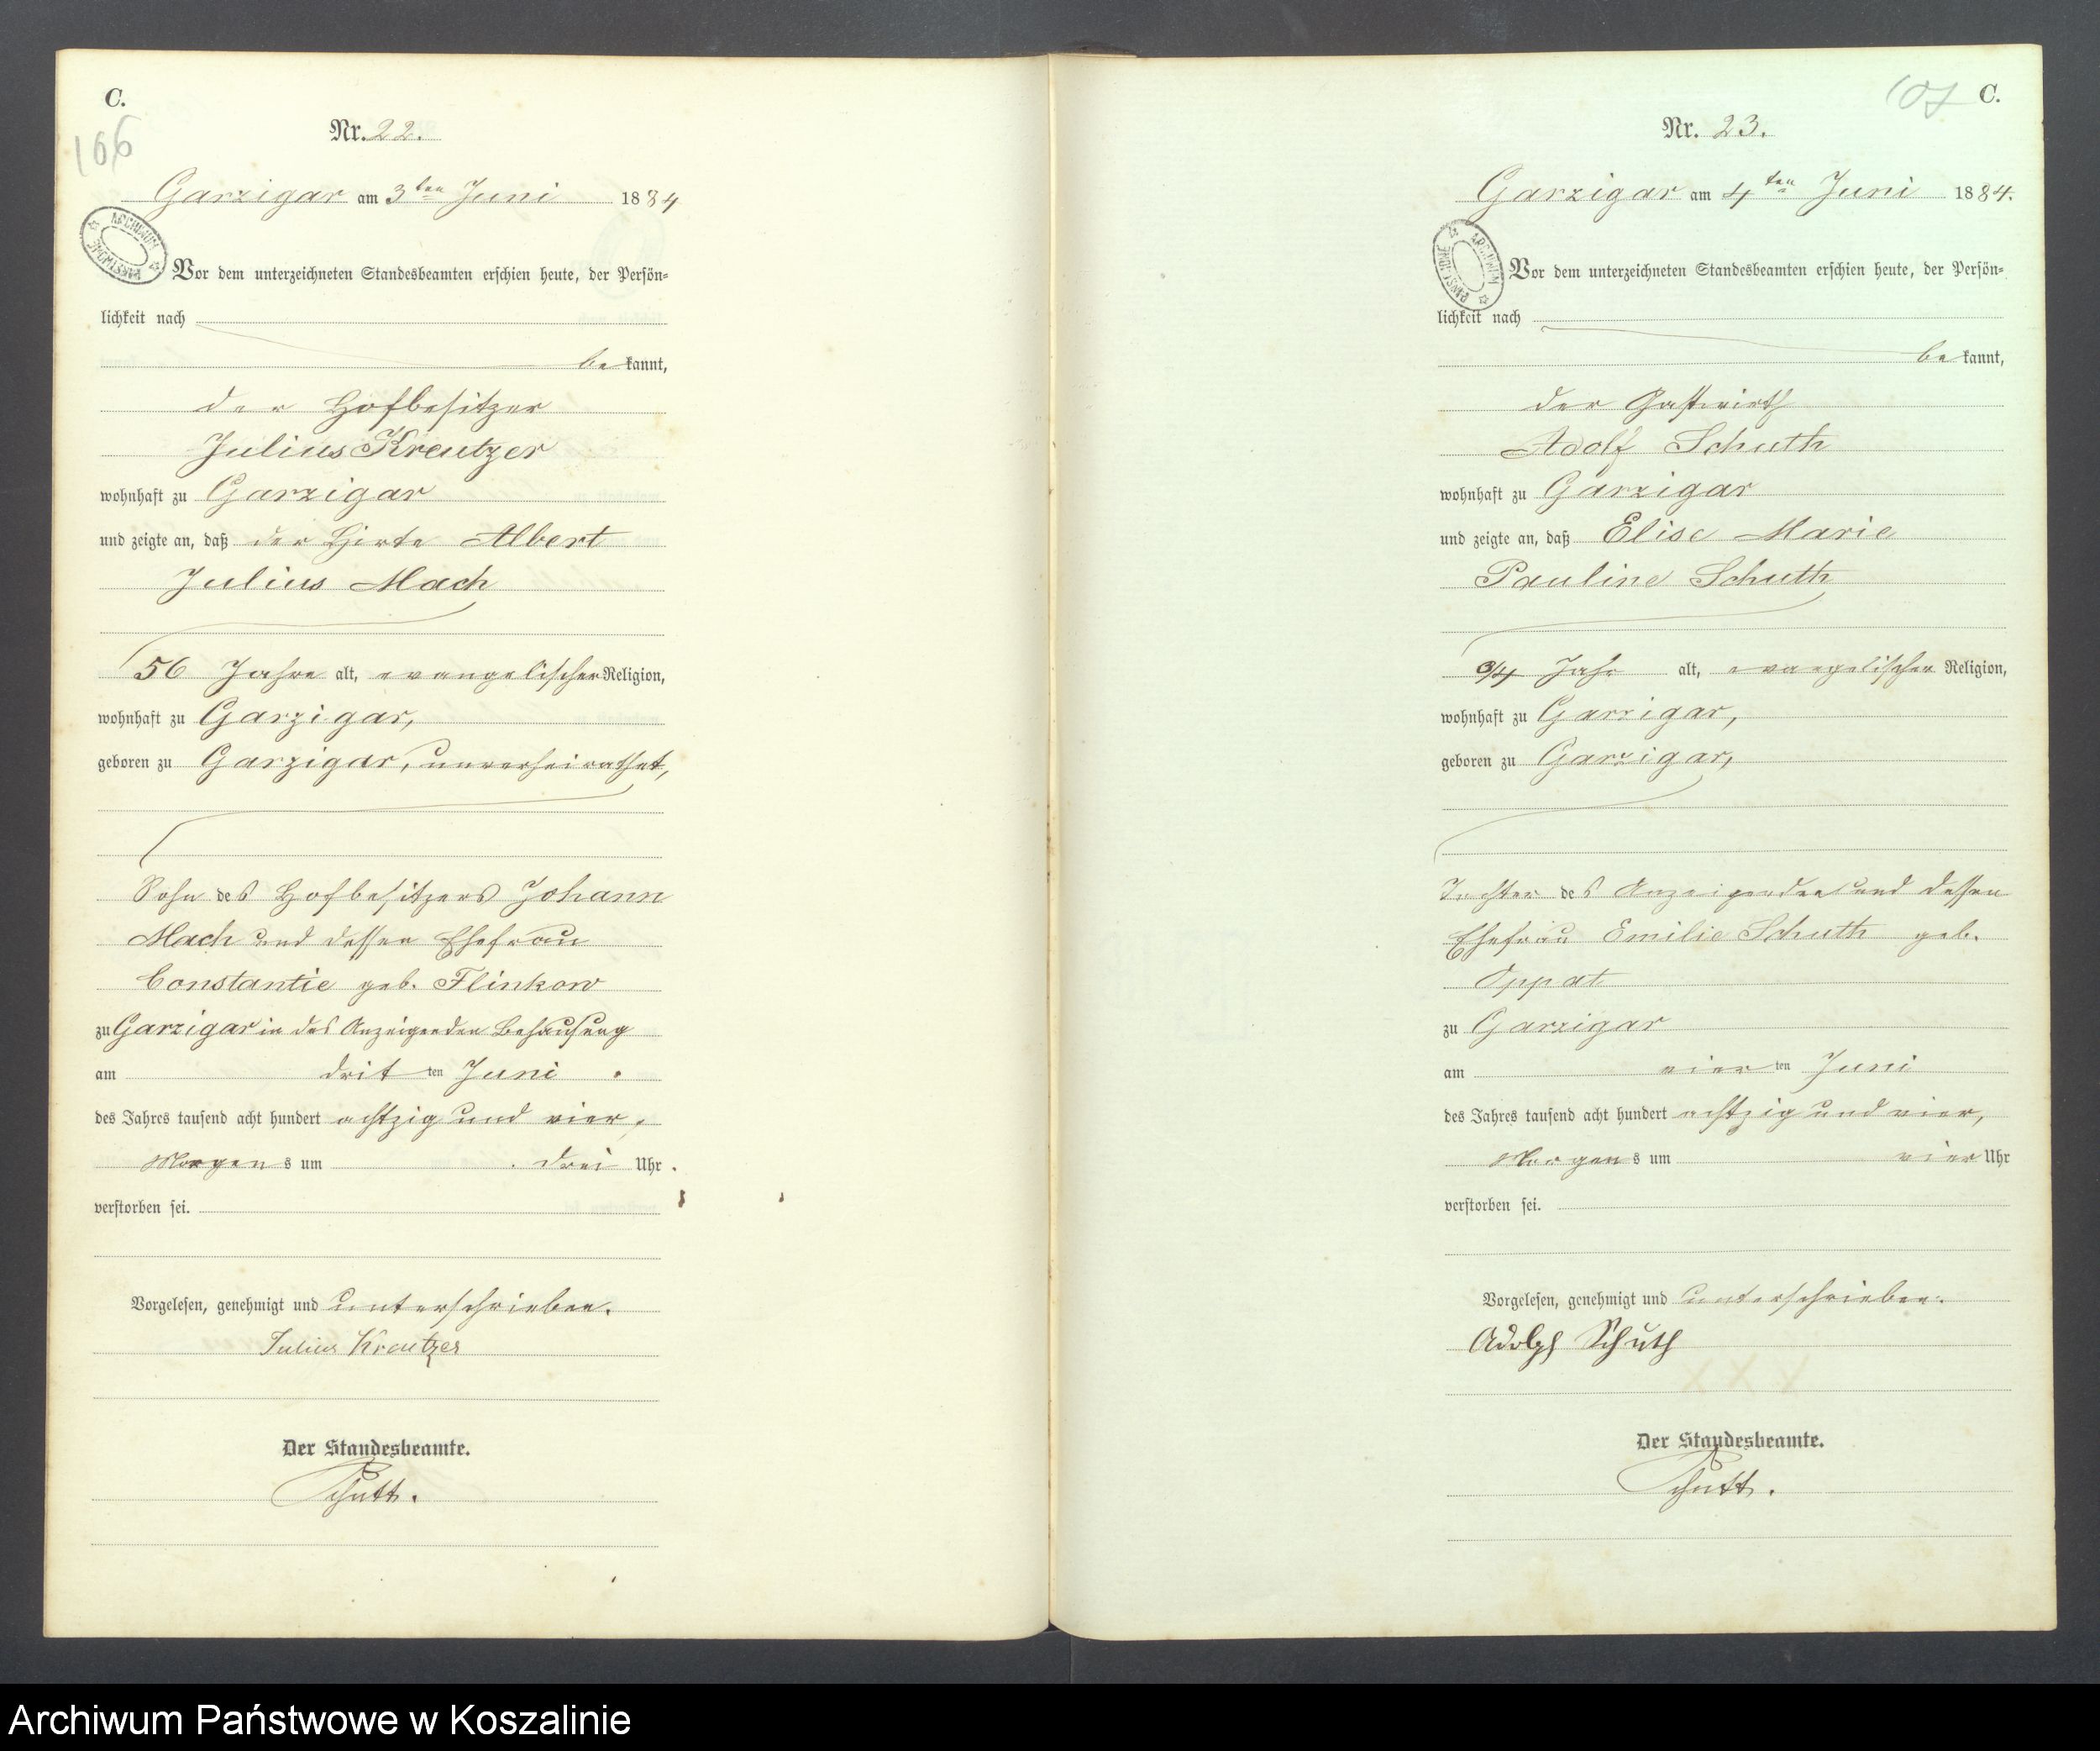 C.
106
Nr. 22.
Garzigar am 3ten Juni 1884
ARCHIWUM PAŃSTWOWE
Vor dem unterzeichneten Standesbeamten erschien heute, der Persön-
lichkeit nach
be kannt,
der Hofbesitzer
Julius Kreutzer
wohnhaft zu Garzigar
und zeigte an, daß der Hirte Albert
Julius Mach
56 Jahre alt, evangelischer Religion,
wohnhaft zu Garzigar,
geboren zu Garzigar, unverheirathet,
Sohn des Hofbesitzers Johann
Mach und dessen Ehefrau
Constantie geb. Flinkow
zu Garzigar in des Anzeigenden Behausung
am drit ten Juni
des Jahres tausend acht hundert achtzig und vier,
Morgen s um drei Uhr
verstorben sei.
Vorgelesen, genehmigt und unterschrieben.
Julius Kreutzer
Der Standesbeamte.
Schutt.
107 C.
Nr. 23.
Garzigar am 4ten Juni 1884.
ARCHIWUM PAŃSTWOWE
Vor dem unterzeichneten Standesbeamten erschien heute, der Persön-
lichkeit nach
be kannt,
der Gastwirth
Adolf Schuth
wohnhaft zu Garzigar
und zeigte an, daß Elise Marie
Pauline Schuth
3/4 Jahr alt, evangelischer Religion,
wohnhaft zu Garzigar,
geboren zu Garzigar,
Tochter des Anzeigenden und dessen
Ehefrau Emilie Schuth geb.
Oppat
zu Garzigar
am vier ten Juni
des Jahres tausend acht hundert achtzig und vier,
Morgen s um vier Uhr
verstorben sei.
Vorgelesen, genehmigt und unterschrieben.
Adolph Schuth
Der Standesbeamte.
Schutt.
Archiwum Państwowe w Koszalinie